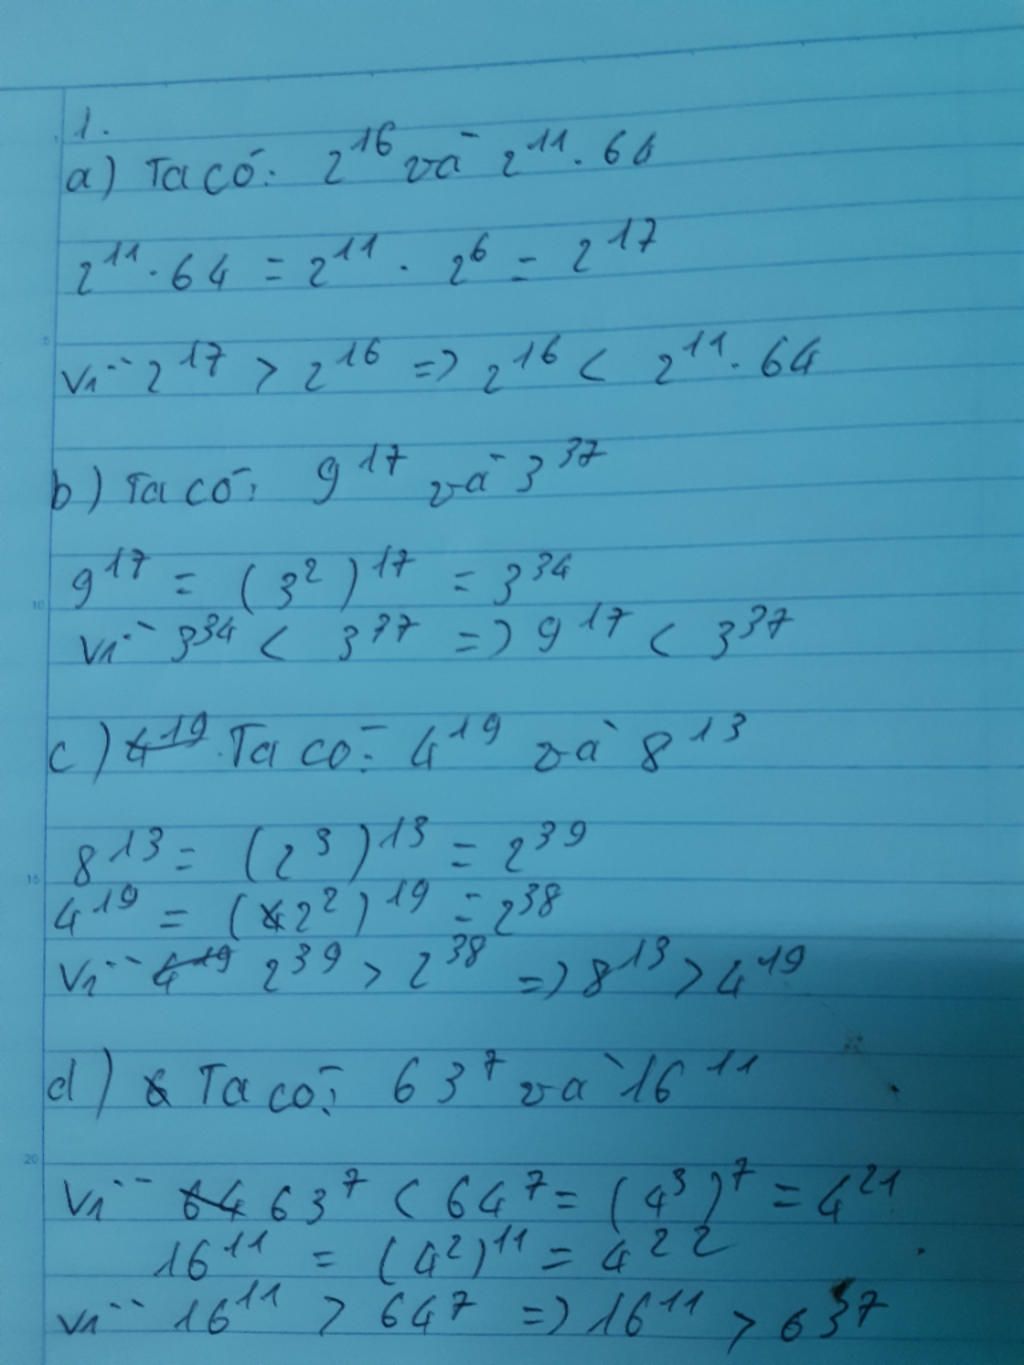 1.
a) Ta có: 2^16 và 2^11 . 64
2^11 . 64 = 2^11 . 2^6 = 2^17
Vì 2^17 > 2^16 => 2^16 < 2^11 . 64
b) Ta có: 9^17 và 3^37
9^17 = (3^2)^17 = 3^34
Vì 3^34 < 3^37 => 9^17 < 3^37
c) Ta có: 4^19 và 8^13
8^13 = (2^3)^13 = 2^39
4^19 = (2^2)^19 = 2^38
Vì 2^39 > 2^38 => 8^13 > 4^19
d) Ta có: 63^7 và 16^11
Vì 63^7 < 64^7 = (4^3)^7 = 4^21
16^11 = (4^2)^11 = 4^22
Vì 16^11 > 64^7 => 16^11 > 63^7
5
10
15
20